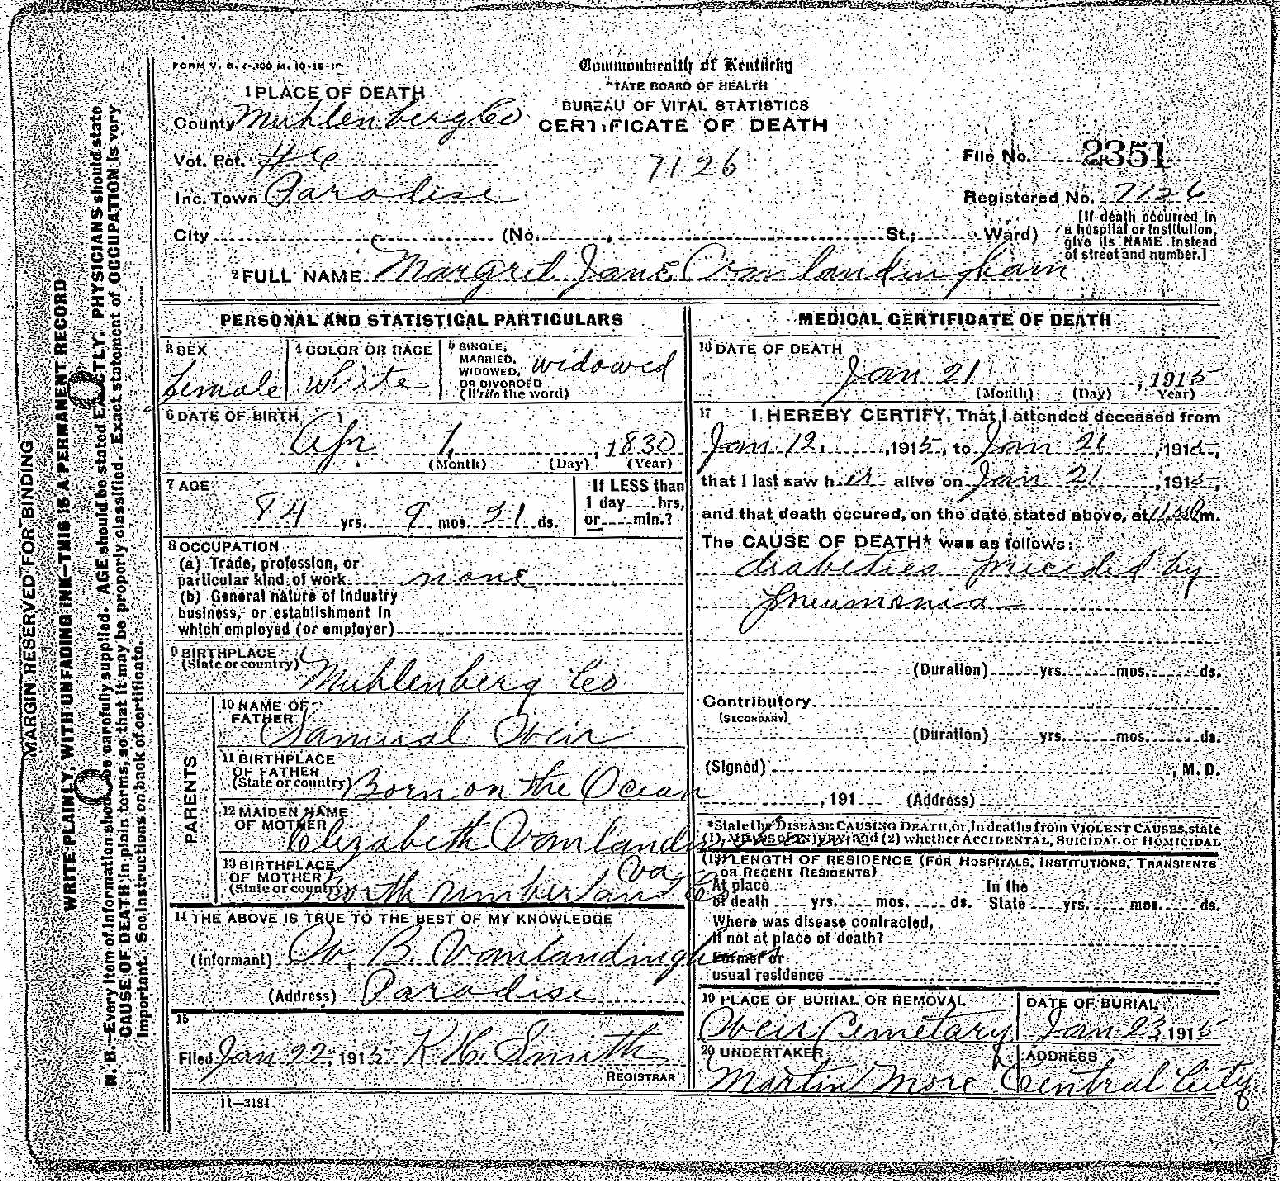 Commonwealth of Kentucky
STATE BOARD OF HEALTH
BUREAU OF VITAL STATISTICS
CERTIFICATE OF DEATH
1 PLACE OF DEATH
County Muhlenberg Co
Vot. Pct.
7126
File No. 2351
Inc. Town Paradise
Registered No. 7126
City (No. , St.; Ward)
[If death occurred in
a hospital or institution,
give its NAME instead
of street and number.]
2 FULL NAME Margret Jane Vanlandingham
PERSONAL AND STATISTICAL PARTICULARS
3 SEX
female
4 COLOR OR RACE
white
5 SINGLE,
MARRIED,
WIDOWED,
OR DIVORCED
(Write the word)
widowed
6 DATE OF BIRTH
Apr 1, , 1830
(Month) (Day) (Year)
7 AGE
84 yrs. 9 mos. 21 ds.
If LESS than
1 day hrs.
or min.?
8 OCCUPATION
(a) Trade, profession, or
particular kind of work none
(b) General nature of industry
business, or establishment in
which employed (or employer)
9 BIRTHPLACE
(State or country) Muhlenberg Co
PARENTS
10 NAME OF
FATHER Samual Weir
11 BIRTHPLACE
OF FATHER
(State or country) Born on the Ocean
12 MAIDEN NAME
OF MOTHER Elizabeth
13 BIRTHPLACE
OF MOTHER
(State or country) North numberland Co Va
14 THE ABOVE IS TRUE TO THE BEST OF MY KNOWLEDGE
(Informant) W. B. Vanlandingham
(Address) Paradise
15
Filed Jan 22, 1915 Smith
REGISTRAR
11—3184
MEDICAL CERTIFICATE OF DEATH
16 DATE OF DEATH
Jan 21 , 1915
(Month) (Day) Year)
17 I HEREBY CERTIFY, That I attended deceased from
Jan 12, , 1915, to Jan 21 , 1915,
that I last saw her alive on Jan 21 , 1915,
and that death occured, on the date stated above, at m.
The CAUSE OF DEATH* was as follows:
diabeties preceded by
pneumonia
(Duration) yrs. mos. ds.
Contributory
(SECONDARY)
(Duration) yrs. mos. ds.
(Signed) , M. D.
, 191 (Address)
*State the DISEASE CAUSING DEATH, or, in deaths from VIOLENT CAUSES, state
(1) MEANS OF INJURY; and (2) whether ACCIDENTAL, SUICIDAL or HOMICIDAL
LENGTH OF RESIDENCE (FOR HOSPITALS, INSTITUTIONS, TRANSIENTS
OR RECENT RESIDENTS)
At place In the
of death yrs. mos. ds. State yrs. mos. ds.
Where was disease contracted,
if not at place of death?
Former or
usual residence
19 PLACE OF BURIAL OR REMOVAL
Weir Cemetary
DATE OF BURIAL
Jan 23, 1915
20 UNDERTAKER
Martin More
ADDRESS
Central City
8
MARGIN RESERVED FOR BINDING
WRITE PLAINLY, WITH UNFADING INK—THIS IS A PERMANENT RECORD
N. B.—Every item of information should be carefully supplied. AGE should be stated EXACTLY. PHYSICIANS should state
CAUSE OF DEATH in plain terms, so that it may be properly classified. Exact statement of OCCUPATION is very
important. See instructions on back of certificate.